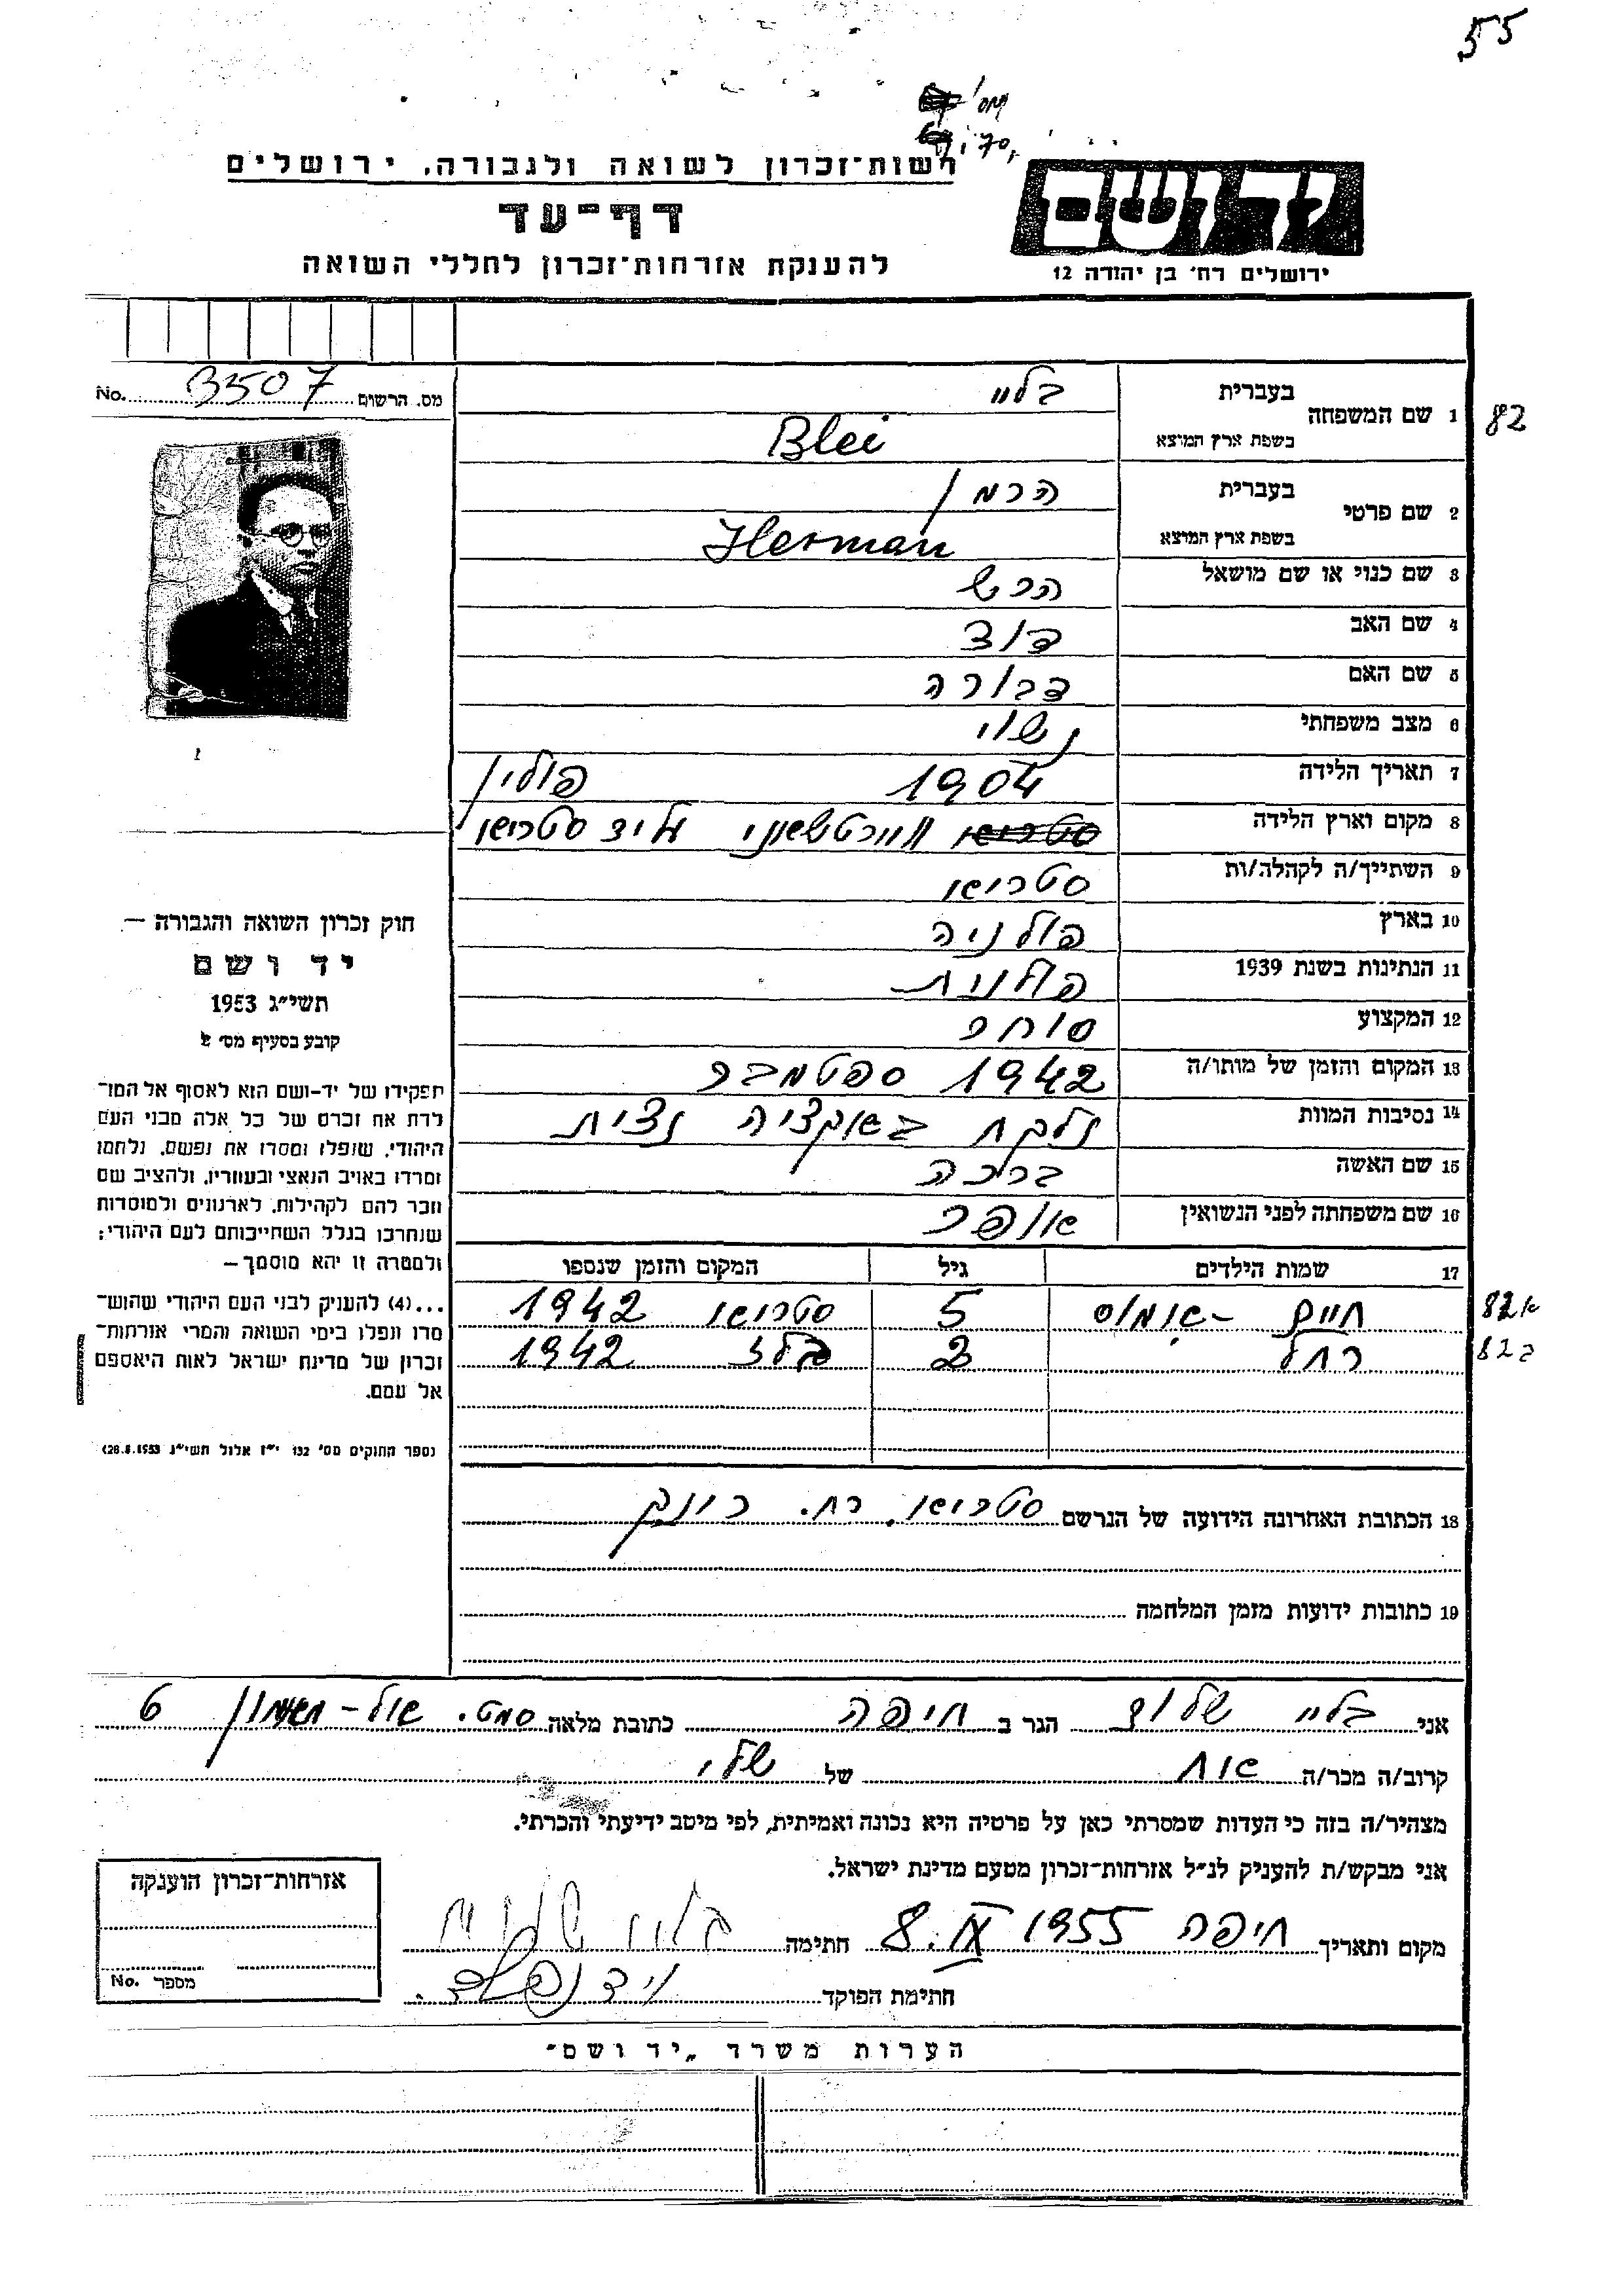 55
רשות־זכרון לשואה ולגבורה. ירושלים
דף־עד
להענקת אזרחות־זכרון לחללי השואה
יד ושם
ירושלים רח׳ בן יהודה 12
מס. הרשום 3507 No.
1 שם המשפחה בעברית בלײ
82
בשפת ארץ המוצא Blei
2 שם פרטי בעברית הרמן
בשפת ארץ המוצא Herman
3 שם כנוי או שם מושאל הרש
4 שם האב דוד
5 שם האם דבורה
6 מצב משפחתי נשוי
7 תאריך הלידה 1904 פולין
8 מקום וארץ הלידה ליד סטריאו
9 השתייך/ה לקהלה/ות סטריאו
10 בארץ פולניה
11 הנתינות בשנת 1939 פולנית
12 המקצוע סוחר
13 המקום והזמן של מותו/ה 1942 ספטמבר
14 נסיבות המוות נלקח באקציה נצית
15 שם האשה ברכה
16 שם משפחתה לפני הנשואין אופר
17 שמות הילדים גיל המקום והזמן שנספו
חיים 5 סטריאו 1942 82א
רחל 2 בלז 1942 82ב
18 הכתובת האחרונה הידועה של הנרשם סטריאו. רח.
19 כתובות ידועות מזמן המלחמה
חוק זכרון השואה והגבורה —
יד ושם
תשי״ג 1953
קובע בסעיף מס׳ 2
תפקידו של יד-ושם הוא לאסוף אל המו־
לדת את זכרם של כל אלה מבני העם
היהודי, שנפלו ומסרו את נפשם, נלחמו
ומרדו באויב הנאצי ובעוזריו, ולהציב שם
וזכר להם לקהילות, לארגונים ולמוסדות
שנחרבו בגלל השתייכותם לעם היהודי;
ולמטרה זו יהא מוסמך —
...(4) להעניק לבני העם היהודי שהוש־
מדו ונפלו בימי השואה והמרי אזרחות־
זכרון של מדינת ישראל לאות היאספם
אל עמם.
(ספר החוקים מס׳ 132 י״ז אלול תשי״ג 28.8.1953)
אני בלײ שלום הגר ב חיפה כתובת מלאה 6
קרוב/ה מכר/ה אח של שלי
מצהיר/ה בזה כי העדות שמסרתי כאן על פרטיה היא נכונה ואמיתית, לפי מיטב ידיעתי והכרתי.
אני מבקש/ת להעניק לנ״ל אזרחות־זכרון מטעם מדינת ישראל.
מקום ותאריך חיפה 8.IX 1955 חתימה בלײ שלום
חתימת הפוקד
אזרחות־זכרון הוענקה
מספר No.
הערות משרד „יד ושם״